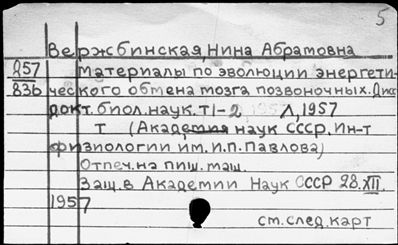 5
Вержбинская, Нина Абрамовна
Д57 Материалы по эволюции энергети-
836 ческого обмена мозга позвоночных. Дисс
докт. биол. наук. т1-2 Л, 1957
т (Академия наук СССР. Ин-т
физиологии им. И.П. Павлова)
Отпеч. на пиш. маш.
Защ. в Академии Наук СССР 28.XII.
1957
см. след. карт